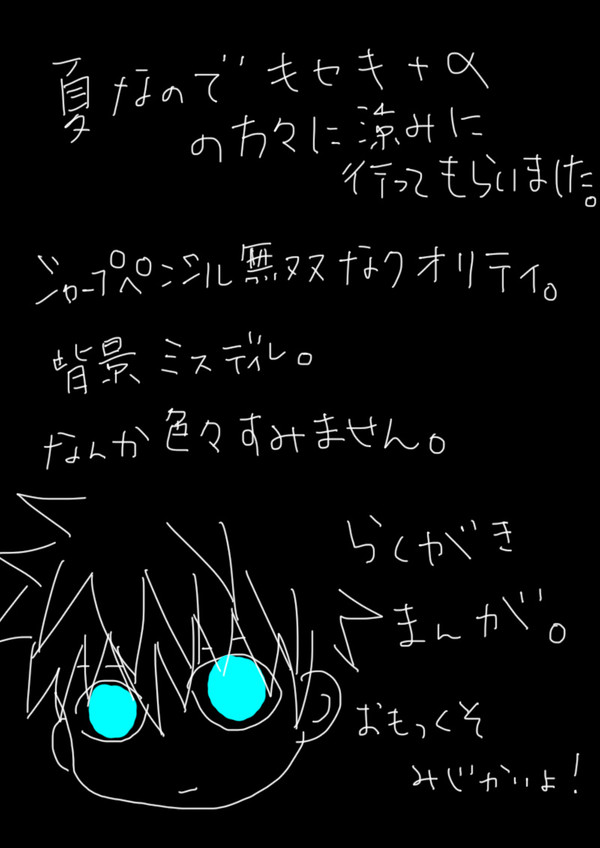 夏なのでキセキ+α
の方々に涼みに
行ってもらいました。
シャープペンシル無双なクオリティ。
背景ミスディレ。
なんか色々すみません。
らくがき
まんが。
おもっくそ
みじかいよ!